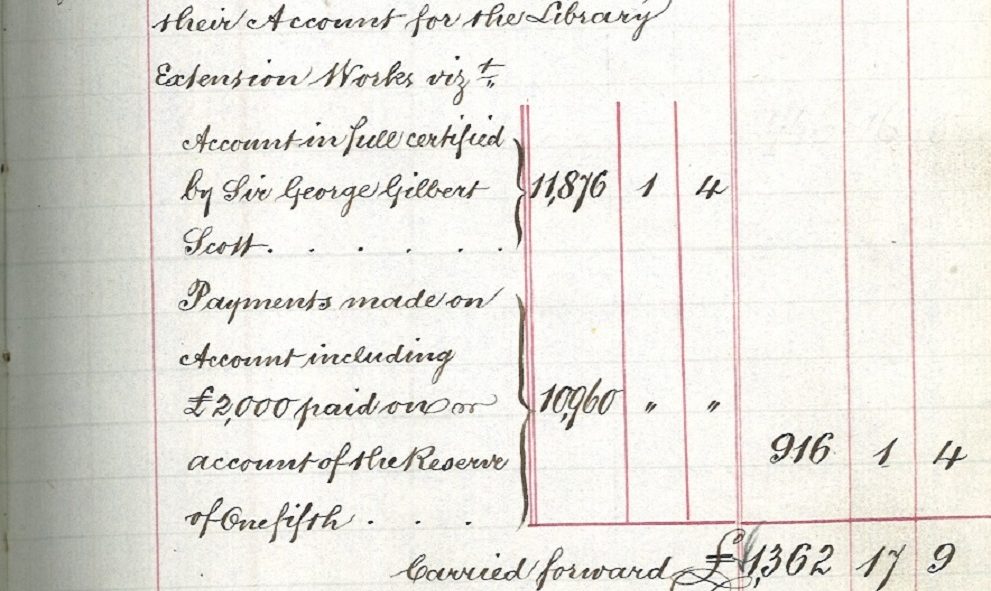 their Account for the Library
Extension Works vizt
Account in full certified
by Sir George Gilbert 11,876 1 4
Scott. . . . . .
Payments made on
Account including
£2,000 paid on 10,960 " "
account of the Reserve 916 1 4
of One fifth . . .
Carried forward £1,362 17 9